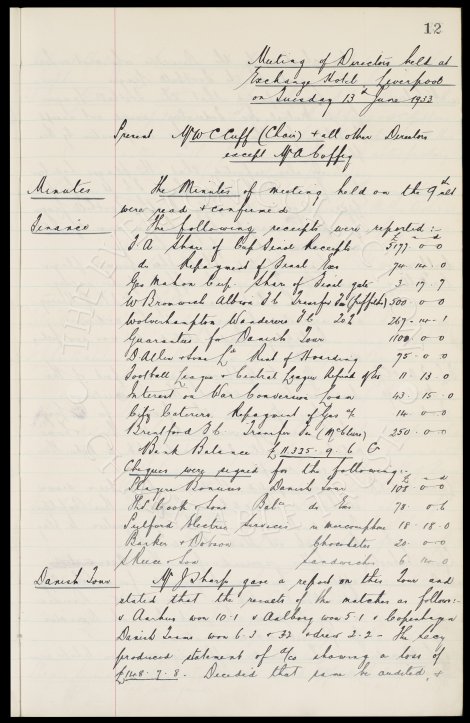 12
Meeting of Directors held at
Exchange Hotel Liverpool
on Tuesday 13th June 1933
Present Mr W C Cuff (Chair) + all other Directors
except Mr A Coffey
Minutes The Minutes of meeting held on the 9th ult
were read + confirmed
Finance The following receipts were reported:-
F.A Share of Cup Final Receipts 5177-0-0
do Repayment of Final Exs 74-14-0
Geo Mahon Cup. Share of Final gate 3-17-7
W Bromwich Albion F.C Transfer fee 500-0-0
Wolverhampton Wanderers F.C 20% 267-14-1
Guarantee for Danish Tour 1100-0-0
D Allen + Sons Ld Rent of Hoarding 75-0-0
Football League + Central League Refund of Exs 11-13-0
Interest on War Conversion Loan 43-15-0
City Caterers Repayment of Gas a/c 14-0-0
Brentford F.C. Transfer fee (McClure) 250-0-0
Bank Balance £11,335-9-6 Cr
Cheques were signed for the following:-
Players Bonuses Danish Tour 108-0-0
Thos Cook + Sons Balce do Exs 78-0-6
Pulford Electric Services marconiphone 18-18-0
Barker + Dobson Chocolates 20-0-0
Reece + Son Sandwiches
Danish Tour Mr J Sharp gave a report on this Tour and
stated that the results of the matches as follows:-
v Aarhus won 10-1 v Aalborg won 5-1 v Copenhagen
Danish Teams won 6-3 + 3-2 + drew 2-2 - The Secy
produced statement of a/cs showing a loss of
£148-7-8. Decided that same be audited, +